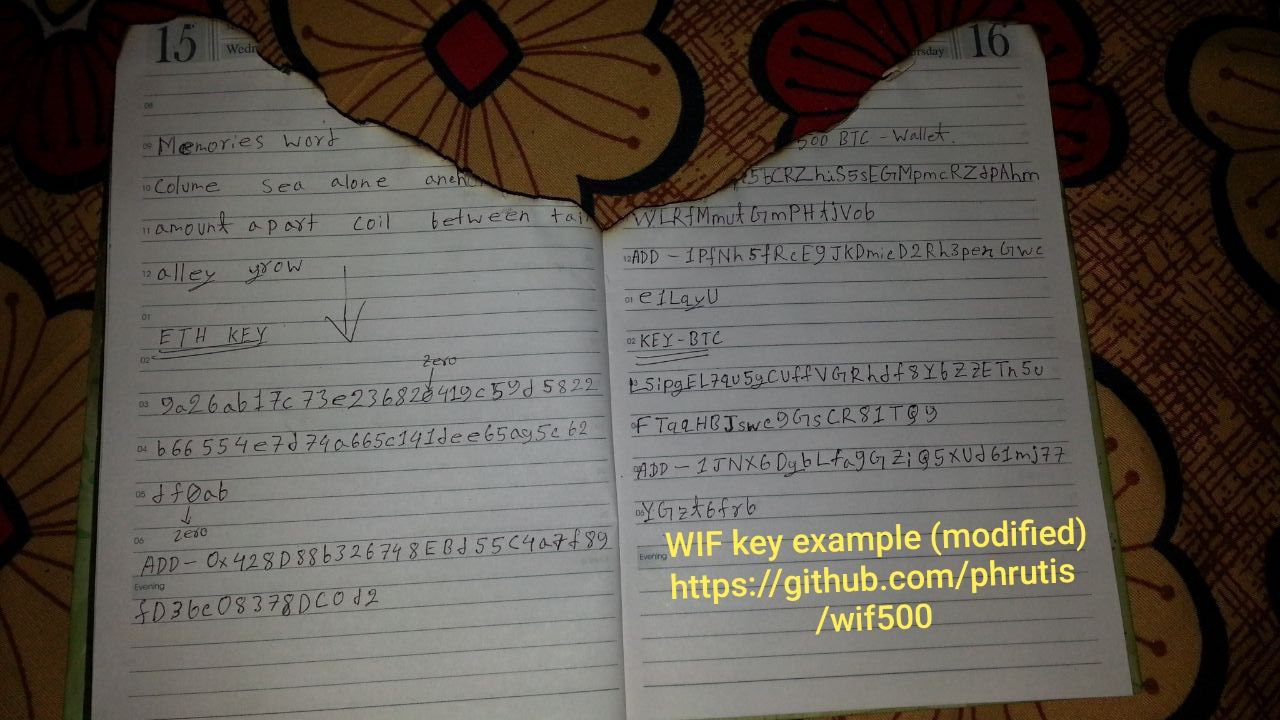 15
Wedn
08
09 Memories word
10 Colume sea alone anch
11 amount apart coil between tai
12 alley grow
01
ETH KEY
02
zero
03 9a26ab17c73e236820419c59d5822
04 b66554e7d74a665c141dee65ag5c62
05 df0ab
zero
06
ADD - 0x428D88b326748EBd55C4a7f89
Evening
fD36c08378DC0d2
rsday 16
500 BTC - Wallet.
5bCRZhiS5sEGMpmcRZdpAhm
WLRfMmutGmPHtJVob
12 ADD - 1PfNh5fRcE9JKDmieD2Rh3penGwc
01 e1LqyU
02 KEY-BTC
L5ipgEL7qu5yCUffVGRhdf8Y6ZzETn5u
FTqaHBJswc9GsCR81TQ9
ADD - 1JNX6DybLfa9GZiQ5XUd61mj77
YGzt6frb
Evening
WIF key example (modified)
https://github.com/phrutis
/wif500